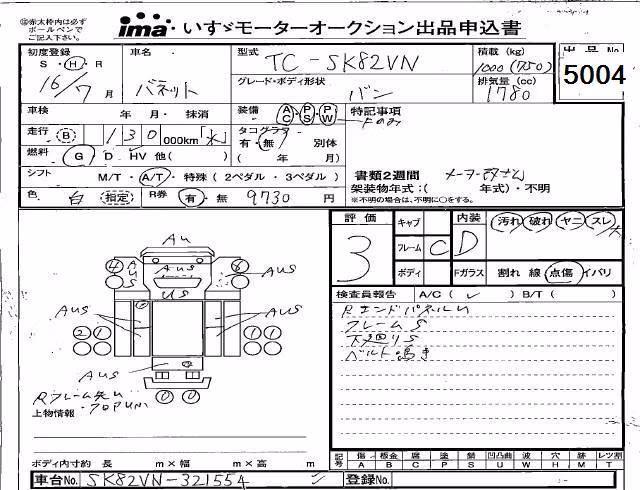 ※赤太枠内は必ず
ボールペンで
ご記入下さい。
ima いすゞモーターオークション出品申込書
初度登録 車名 型式 TC-SK82VN 積載(kg) 1000(750) 出品No
S・H・R 16/7月 バネット グレード・ボディ形状 バン 排気量(cc) 1780 5004
車検 年 月・抹消 装備 AC・PS・PW 特記事項
走行 B 130 000km タコグラフ Fのみ
有・無/別体
燃料 G D HV 他( ) ( 年 月)
シフト M/T・A/T・特殊(2ペダル・3ペダル) 書類2週間
架装物年式:( 年式)・不明
※不明の場合は、不明に○をする。
色 白 指定 R券 有・無 9730円
評価 3 キャブ 内装 D 汚れ 破れ ヤニ スレ
フレーム C
ボディ Fガラス 割れ 線 点傷 イバリ
検査員報告 A/C(✓) B/T( )
RエンドパネルU
フレームS
下廻りS
ベルト鳴き
AU
4 AUS 6 AUS
US US
AUS AUS
2 1 0 1
AUS
0 0
上物情報
ボディ内寸約 長 m×幅 m×高 m
記号 傷A 板金B 腐C 塗P 錆S 凹凸曲U 波W 穴H 跡M レツ割T
車台No. SK82VN-321554 登録No.